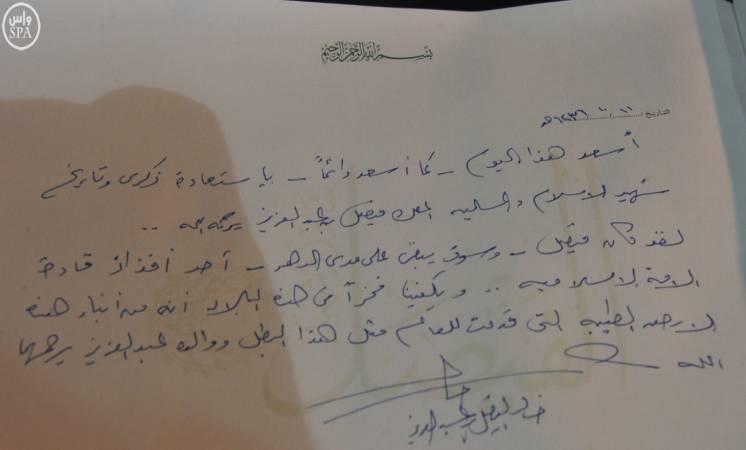 واس
SPA
بسم الله الرحمن الرحيم
التاريخ: ١١ / ١٠ / ١٤٣٦هـ
أسعد هذا اليوم - كما أسعد دائماً - باستعادة ذكرى وتاريخ
شهيد الإسلام والسلام الملك فيصل بن عبدالعزيز يرحمه الله ..
لقد كان فيصل - وسوف يبقى على مدى الدهر - أحد أفذاذ قادة
الأمة الإسلامية .. ويكفينا فخراً في هذه البلاد أنه من أبناء هذه
الأرض الطيبة التي قدمت للعالم مثل هذا البطل ووالده عبدالعزيز يرحمهما
الله
خالد الفيصل بن عبدالعزيز
الفيصل